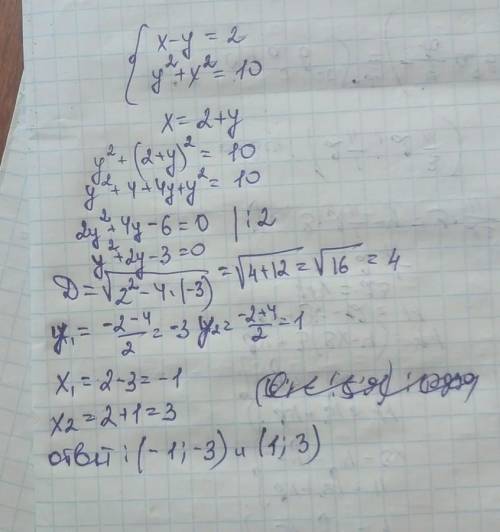 x-y=2
y²+x²=10
x=2+y
y²+(2+y)²=10
y²+4+4y+y²=10
2y²+4y-6=0 |:2
y²+2y-3=0
D=√2²-4·(-3) =√4+12=√16=4
y₁=-2-4/2=-3 y₂=-2+4/2=1
x₁=2-3=-1
x₂=2+1=3
ответ:(-1;-3) и (1;3)